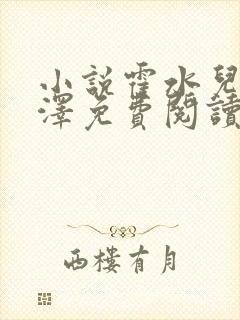 小說霍水兒
澤免費閱讀
西樓有月